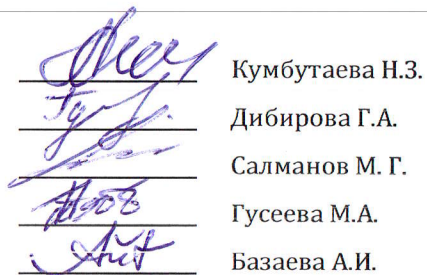 Кумбутаева Н.З.
Дибирова Г.А.
Салманов М. Г.
Гусеева М.А.
Базаева А.И.